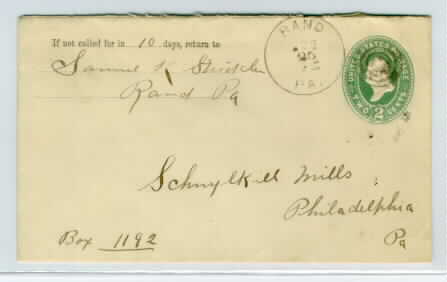 If not called for in 10 days, return to
Samuel K Strickler
Rand Pa
RAND
PA.
UNITED STATES POSTAGE
TWO 2 CENTS
Schuylkill Mills
Philadelphia
Pa
Box 1192